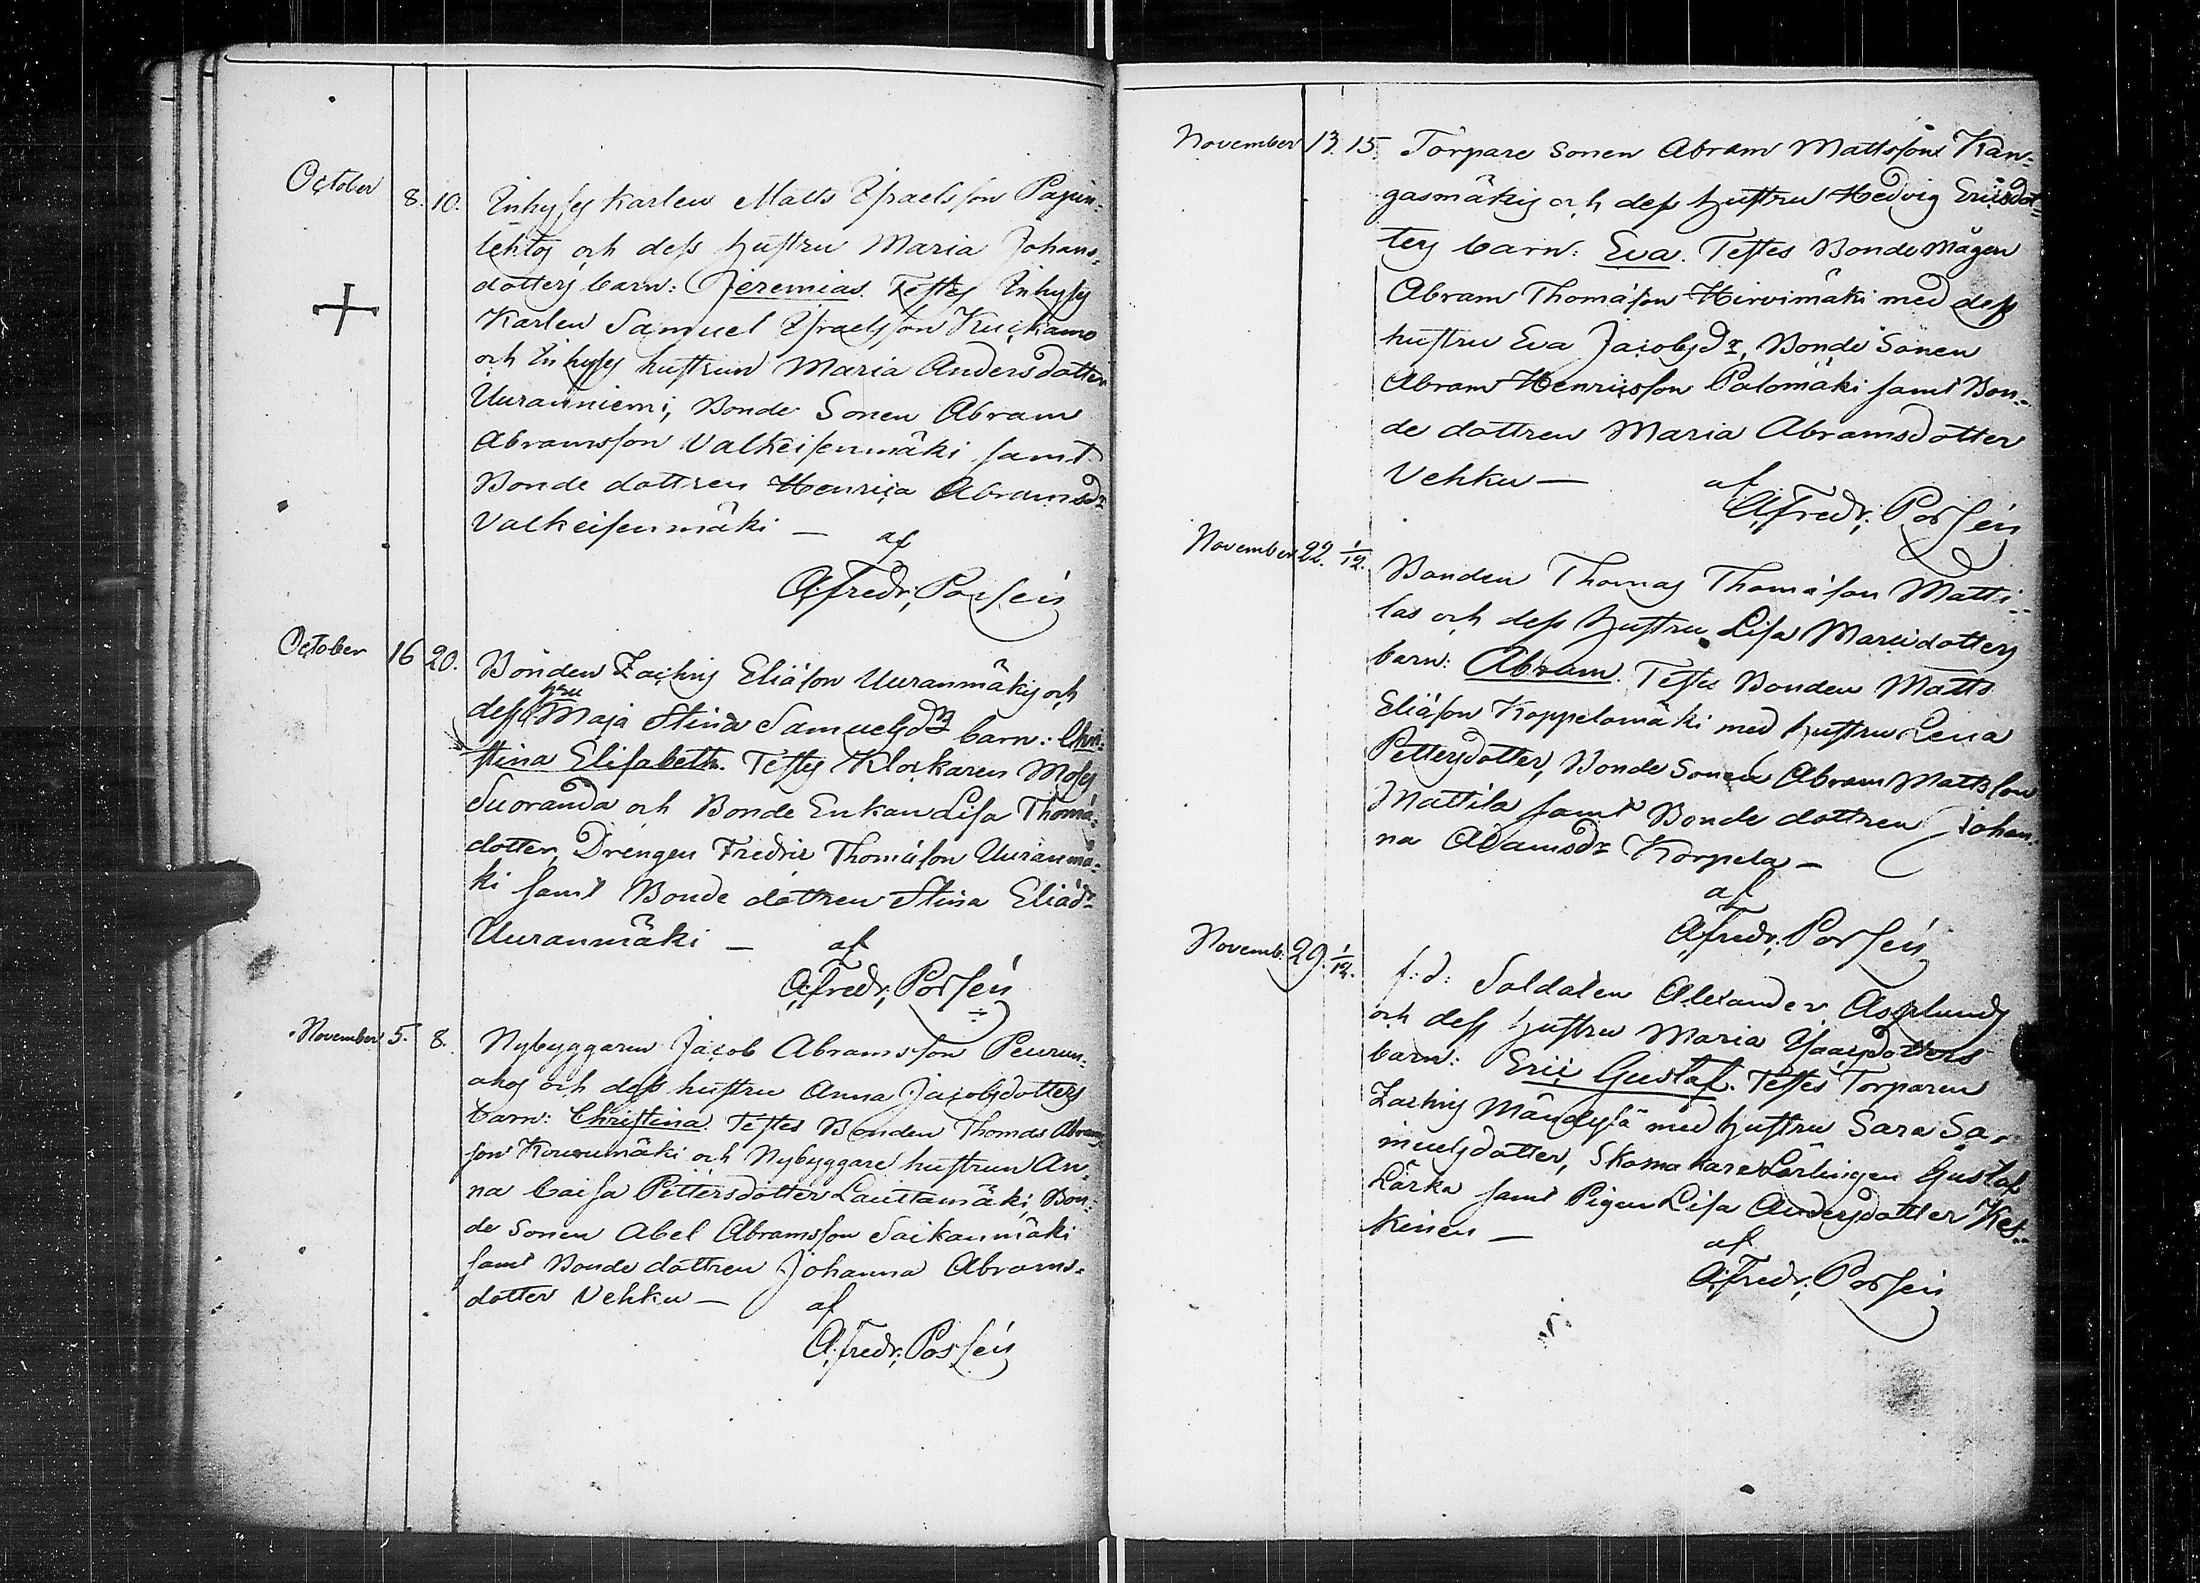 October 8. 10. Inhyses karlen Matts Israelsson Pajun-
lehtos och dess hustru Maria Johans-
dotters barn: Jeremias. Testes Inhyses
Karlen Samuel Israelsson Kuckamo
och Inhyses hustrun Maria Andersdotter
Uuranniemi, Bonde Sonen Abram
Abramsson Valkeisenmäki samt
Bonde dottren Henrica Abramsdr
Valkeisenmäki —
af
A. Fredr. Porsén
October 16 20. Bonden Zachris Eliasson Uuranmäkis och
hru
dess Maja Stina Samuelsdrs barn: Chri-
stina Elisabeth. Testes Klockaren Moses
Suoranda och Bonde Enkan Lisa Thomæ-
dotter, Drengen Fredric Thomasson Uuranmä-
ki samt Bonde dottren Stina Eliædr
Uuranmäki —
af
A. Fredr. Porsén
November 5. 8. Nybyggaren Jacob Abramsson Peurun-
ahos och dess hustru Anna Jacobsdotters
barn: Christina. Testes Bonden Thomas Abrams
son Kourumäki och Nybyggare hustrun An-
na Caisa Pettersdotter Lauttamäki, Bon-
de Sonen Abel Abramsson Saikanmäki
samt Bonde dottren Johanna Abrams-
dotter Vehku —
af
A. Fredr. Porsén
November 13. 15. Torpare Sonen Abram Mattsson Kan-
gasmäkis och dess hustru Hedvig Ericsdot-
ters barn: Eva. Testes Bonde Mågen
Abram Thomasson Hirvimäki med dess
hustru Eva Jacobsdr, Bonde Sonen
Abram Henricsson Palomäki samt Bon-
de dottren Maria Abramsdotter
Vehku —
af
A. Fredr. Porsén
November 22. 1/12. Bonden Thomas Thomasson Matti-
las och dess hustru Lisa Marcidotters
barn: Abram. Testes Bonden Matts
Eliasson Koppelomäki med hustru Lena
Pettersdotter, Bonde Sonen Abram Mattsson
Mattila samt Bonde dottren Johan-
na Adamsdr Korpela —
af
A. Fredr. Porsén
Novemb. 29. 1/12. f: d: Soldaten Alexander Asplunds
och dess hustru Maria Isacsdotters
barn: Eric Gustaf. Testes Torparen
Zachris Mändylä med hustru Sara Sa-
muelsdotter, Skomakare Lärlingen Gustaf
Lärka samt Pigan Lisa Andersdotter Kes-
kinen —
af
A. Fredr. Porsén